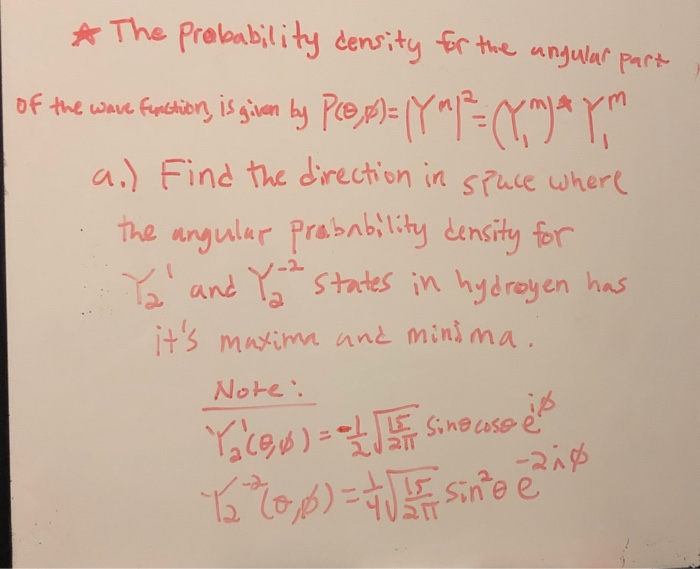 ★ The Probability density for the angular part
of the wave function, is given by P(θ,φ)=|Yᵐ|²=(Y₁ᵐ)* Y₁ᵐ
a.) Find the direction in space where
the angular probability density for
Y₂¹ and Y₂⁻² states in hydrogen has
it's maxima and minima.
Note:
Y₂¹(θ,φ) = -1/2 √(15/2π) sinθcosθ e^iφ
Y₂⁻²(θ,φ) = 1/4 √(15/2π) sin²θ e^-2iφ